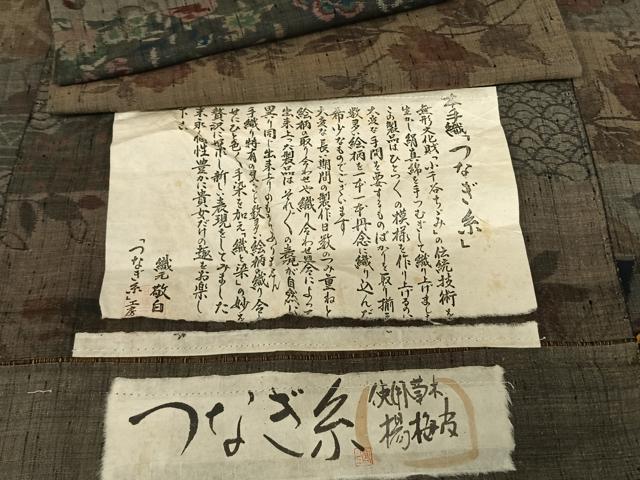 本手織「つなぎ糸」
無形文化財「小千谷ちぢみ」の伝統技術を
生かし絹真綿を手つむぎして織り上げました
この製品はひとつ〱の模様を作り上げるの
大変な手間を要するものばかりを取り揃
数多い絵柄を一本一本丹念に織り込んだ
希少なものでございます
大変な長い期間の製作日数のつみ重ねと
絵柄の取り合わせや織り合わせ具合によって
出来上った製品はそれ〲の表現が自然に
異り同じ出来上りのもの
手織り特有の
せにひと色〱手染を加え「織と染」の妙を
贅沢に深い新しい表現をしてみました
末永く個性豊かに貴女だけの趣をお楽し
下さい
織元 敬白
「つなぎ糸」工房
つなぎ糸
使用草木
楊梅皮